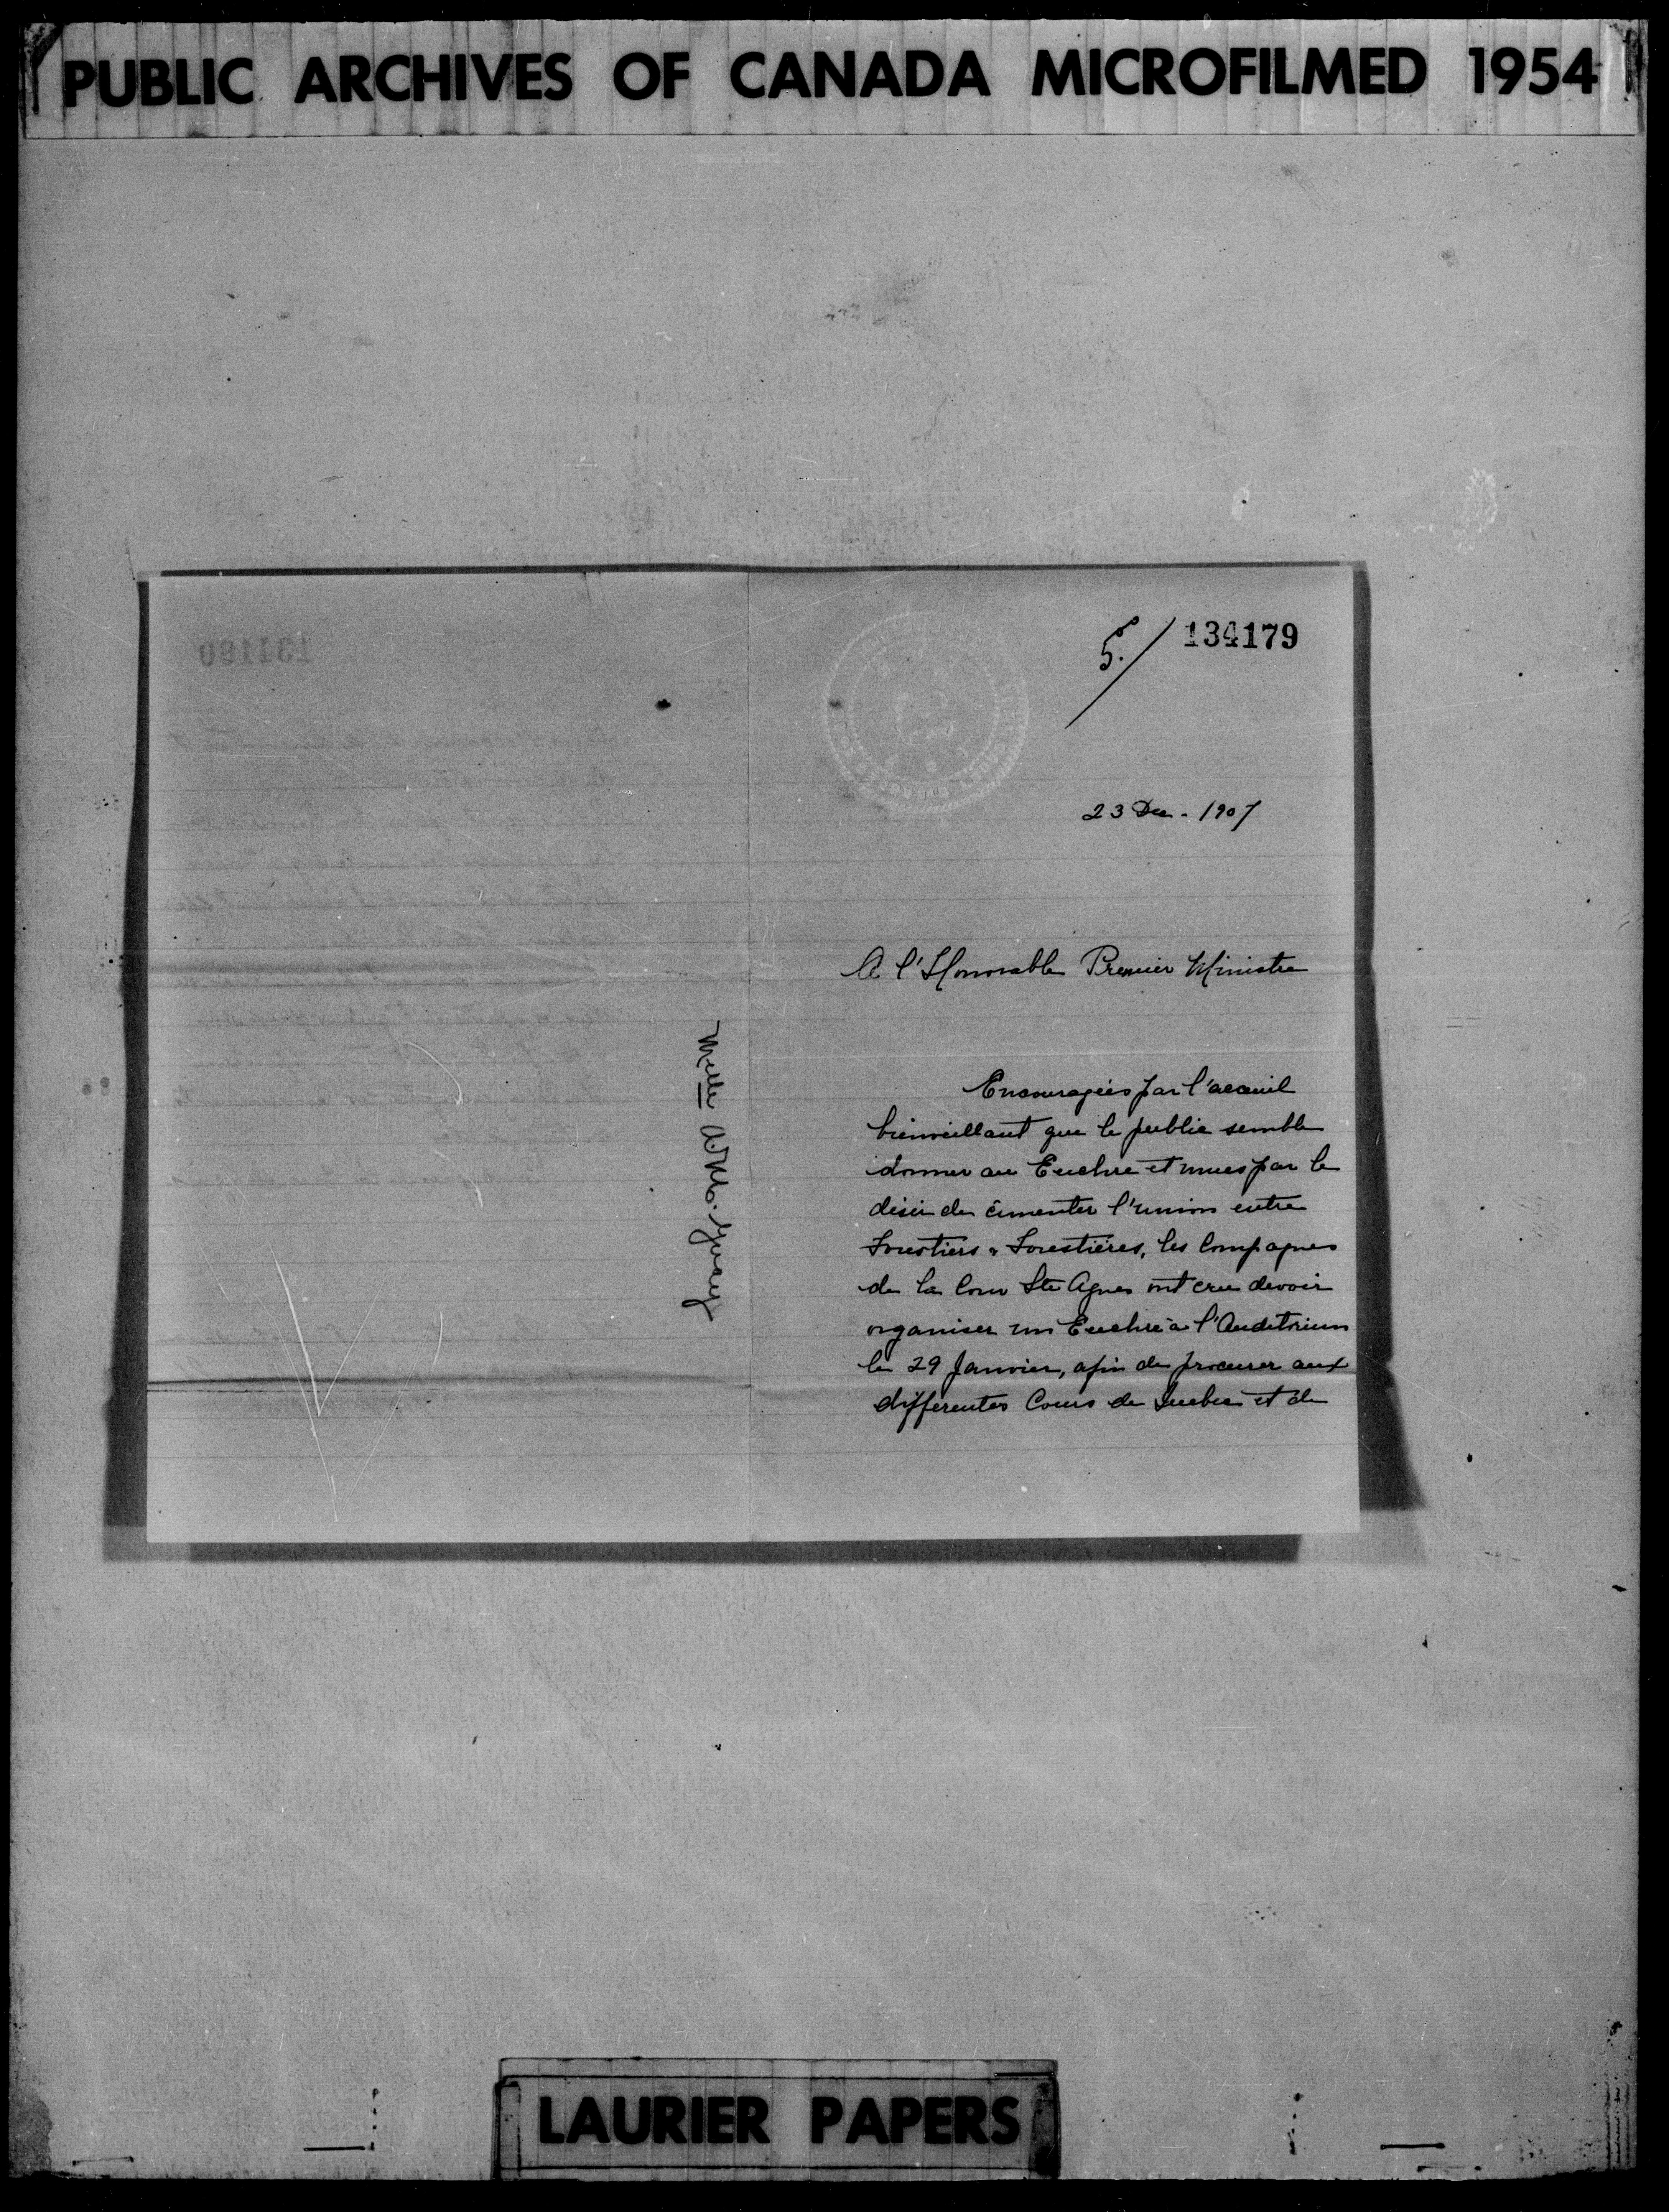 PUBLIC ARCHIVES OF CANADA MICROFILMED 1954
134179
23 Dec - 1907
A l'Honorable Premier Ministre
Encouragées par l'acceuil
bienveillant que le public semble
donner au Euchre et mues par le
désir de cimenter l'union entre
Forestiers & Forestières, les Compagnes
de la Cour Ste Agnes ont cru devoir
organiser un Euchre à l'Auditorium
le 29 Janvier, afin de procurer aux
différentes Cours de Quebec et de
Melle
LAURIER PAPERS